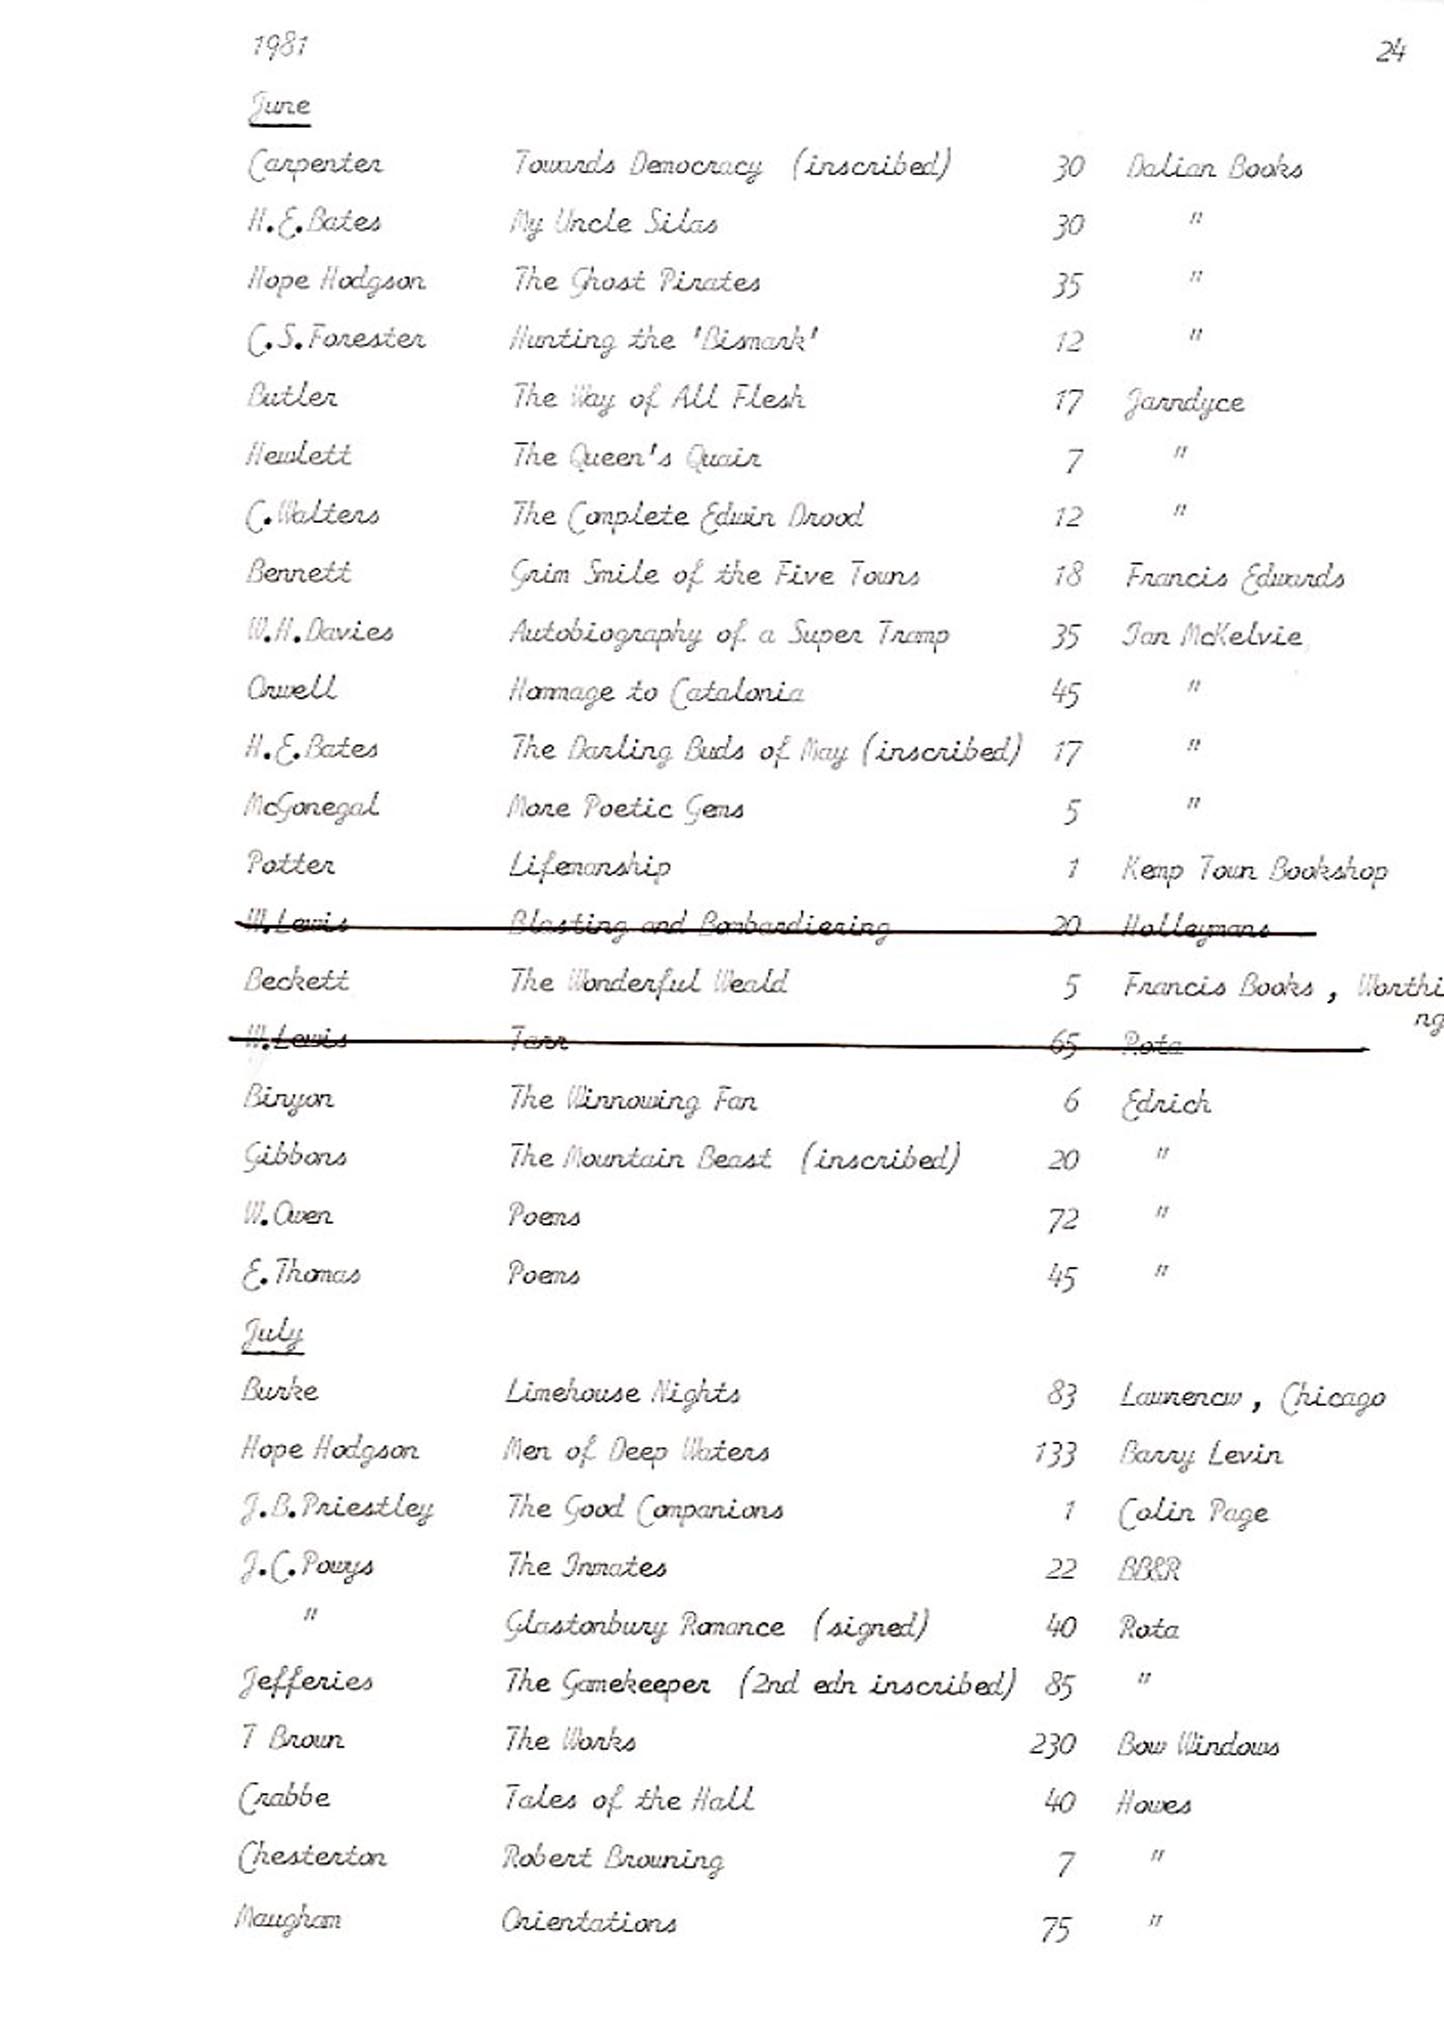 1981 24
June
Carpenter Towards Democracy (inscribed) 30 Dalian Books
H.E.Bates My Uncle Silas 30 "
Hope Hodgson The Ghost Pirates 35 "
C.S.Forester Hunting the 'Bismark' 12 "
Butler The Way of All Flesh 17 Jarndyce
Hewlett The Queen's Quair 7 "
C.Walters The Complete Edwin Drood 12 "
Bennett Grim Smile of the Five Towns 18 Francis Edwards
W.H.Davies Autobiography of a Super Tramp 35 Ian McKelvie
Orwell Hommage to Catalonia 45 "
H.E.Bates The Darling Buds of May (inscribed) 17 "
McGonegal More Poetic Gems 5 "
Potter Lifemanship 1 Kemp Town Bookshop
W.Lewis Blasting and Bombardiering 20 Holleymans
Beckett The Wonderful Weald 5 Francis Books , Worthi
ng
W.Lewis Tarr 65 Rota
Binyon The Winnowing Fan 6 Edrich
Gibbons The Mountain Beast (inscribed) 20 "
W.Owen Poems 72 "
E.Thomas Poems 45 "
July
Burke Limehouse Nights 83 Lawrencw , Chicago
Hope Hodgson Men of Deep Waters 133 Barry Levin
J.B.Priestley The Good Companions 1 Colin Page
J.C.Powys The Inmates 22 BB&R
" Glastonbury Romance (signed) 40 Rota
Jefferies The Gamekeeper (2nd edn inscribed) 85 "
T Brown The Works 230 Bow Windows
Crabbe Tales of the Hall 40 Howes
Chesterton Robert Browning 7 "
Maugham Orientations 75 "